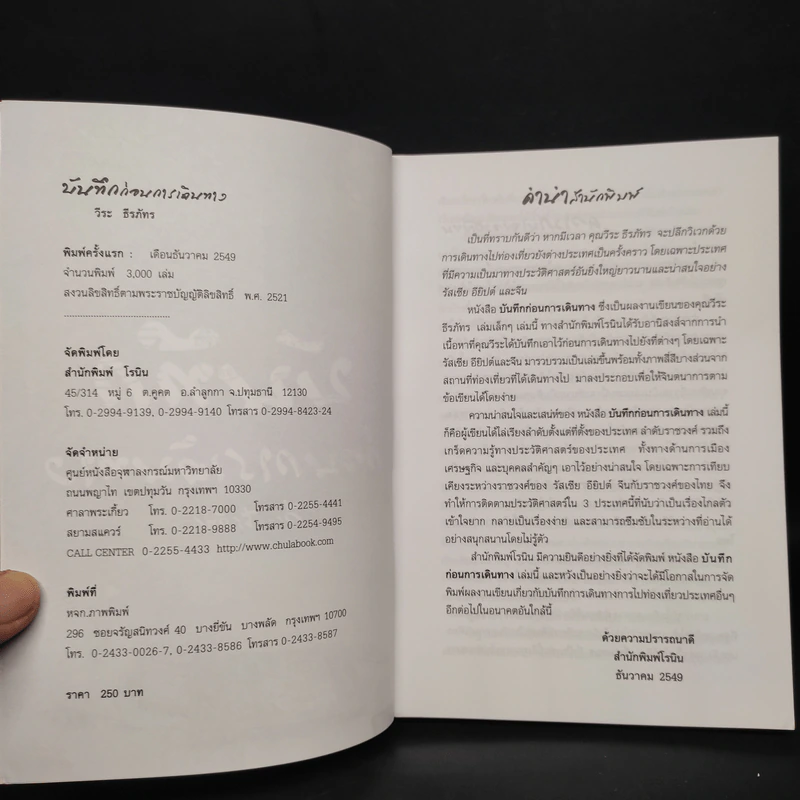 บันทึกก่อนการเดินทาง
วีระ ธีรภัทร
พิมพ์ครั้งแรก : เดือนธันวาคม 2549
จำนวนพิมพ์ 3,000 เล่ม
สงวนลิขสิทธิ์ตามพระราชบัญญัติลิขสิทธิ์ พ.ศ. 2521
จัดพิมพ์โดย
สำนักพิมพ์ โรนิน
45/314 หมู่ 6 ต.คูคต อ.ลำลูกกา จ.ปทุมธานี 12130
โทร. 0-2994-9139, 0-2994-9140 โทรสาร 0-2994-8423-24
จัดจำหน่าย
ศูนย์หนังสือจุฬาลงกรณ์มหาวิทยาลัย
ถนนพญาไท เขตปทุมวัน กรุงเทพฯ 10330
ศาลาพระเกี้ยว โทร. 0-2218-7000 โทรสาร 0-2255-4441
สยามสแควร์ โทร. 0-2218-9888 โทรสาร 0-2254-9495
CALL CENTER 0-2255-4433 http://www.chulabook.com
พิมพ์ที่
หจก.ภาพพิมพ์
296 ซอยจรัญสนิทวงศ์ 40 บางยี่ขัน บางพลัด กรุงเทพฯ 10700
โทร. 0-2433-0026-7, 0-2433-8586 โทรสาร 0-2433-8587
ราคา 250 บาท
คำนำสำนักพิมพ์
เป็นที่ทราบกันดีว่า หากมีเวลา คุณวีระ ธีรภัทร จะปลีกวิเวกด้วย
การเดินทางไปท่องเที่ยวยังต่างประเทศเป็นครั้งคราว โดยเฉพาะประเทศ
ที่มีความเป็นมาทางประวัติศาสตร์อันยิ่งใหญ่ยาวนานและน่าสนใจอย่าง
รัสเซีย อียิปต์ และจีน
หนังสือ บันทึกก่อนการเดินทาง ซึ่งเป็นผลงานเขียนของคุณวีระ
ธีรภัทร เล่มเล็กๆ เล่มนี้ ทางสำนักพิมพ์โรนินได้รับอานิสงส์จากการนำ
เนื้อหาที่คุณวีระได้บันทึกเอาไว้ก่อนการเดินทางไปยังที่ต่างๆ โดยเฉพาะ
รัสเซีย อียิปต์และจีน มารวบรวมเป็นเล่มขึ้นพร้อมทั้งภาพสี่สีบางส่วนจาก
สถานที่ท่องเที่ยวที่ได้เดินทางไป มาลงประกอบเพื่อให้จินตนาการตาม
ข้อเขียนได้โดยง่าย
ความน่าสนใจและเสน่ห์ของ หนังสือ บันทึกก่อนการเดินทาง เล่มนี้
ก็คือผู้เขียนได้ไล่เรียงลำดับตั้งแต่ที่ตั้งของประเทศ ลำดับราชวงศ์ รวมถึง
เกร็ดความรู้ทางประวัติศาสตร์ของประเทศ ทั้งทางด้านการเมือง
เศรษฐกิจ และบุคคลสำคัญๆ เอาไว้อย่างน่าสนใจ โดยเฉพาะการเทียบ
เคียงระหว่างราชวงศ์ของ รัสเซีย อียิปต์ จีนกับราชวงศ์ของไทย จึง
ทำให้การติดตามประวัติศาสตร์ใน 3 ประเทศนี้ที่นับว่าเป็นเรื่องไกลตัว
เข้าใจยาก กลายเป็นเรื่องง่าย และสามารถซึมซับในระหว่างที่อ่านได้
อย่างสนุกสนานโดยไม่รู้ตัว
สำนักพิมพ์โรนิน มีความยินดีอย่างยิ่งที่ได้จัดพิมพ์ หนังสือ บันทึก
ก่อนการเดินทาง เล่มนี้ และหวังเป็นอย่างยิ่งว่าจะได้มีโอกาสในการจัด
พิมพ์ผลงานเขียนเกี่ยวกับบันทึกการเดินทางการไปท่องเที่ยวประเทศอื่นๆ
อีกต่อไปในอนาคตอันใกล้นี้
ด้วยความปรารถนาดี
สำนักพิมพ์โรนิน
ธันวาคม 2549